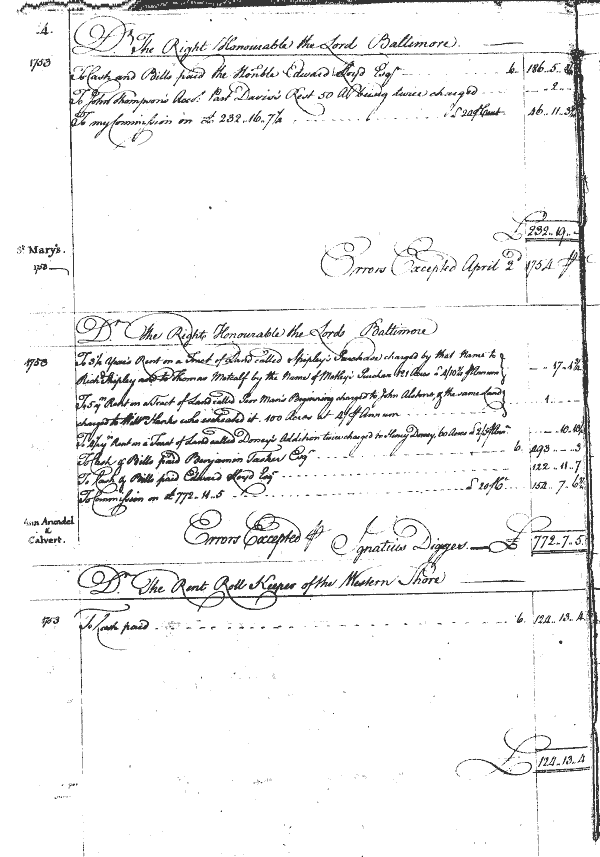 4.
Dr. The Right Honourable the Lord Baltimore.
1753
To Cash and Bills paid the Honble Edward Lloyd Esqr 6. 186..5..
To John Thompson's Acct. Part Davis's Rest 50 As being twice charged 2
To my Commission on £232..16..7½ 20 46..11..3
£ 232..19..
St Mary's.
1753
Errors Excepted April 2d 1754
Dr. the Right Honourable the Lord Baltimore
1753
To 3½ Years Rent on a Tract of Land called Shipley's Purchase charged by that Name to
Richd Shipley and to Thomas Metcalf by the Name of 121 Acres 17..
To 5 yrs Rent on a Tract of Land called Beginning charged to John & the same Land
charged to Willm Hanks who 100 Acres at 4/ Annum 1
To Rent on a Tract of Land called Dorsey's Addition twice charged to Henry Dorsey, 60 Acres 10..
To Cash & Bills paid Benjamin Tasker Esqr 6. 493..3
To Cash & Bills paid Edward Lloyd Esqr 122..11..7
To Commission on £772..11..5 20 154..7..
Ann Arundel
&
Calvert.
Errors Excepted Ignatius Diggers £ 772..7..5
Dr. The Rent Roll Keeper of the Western Shore
1753 To Cash paid 6. 124..13..4
£ 124..13..4